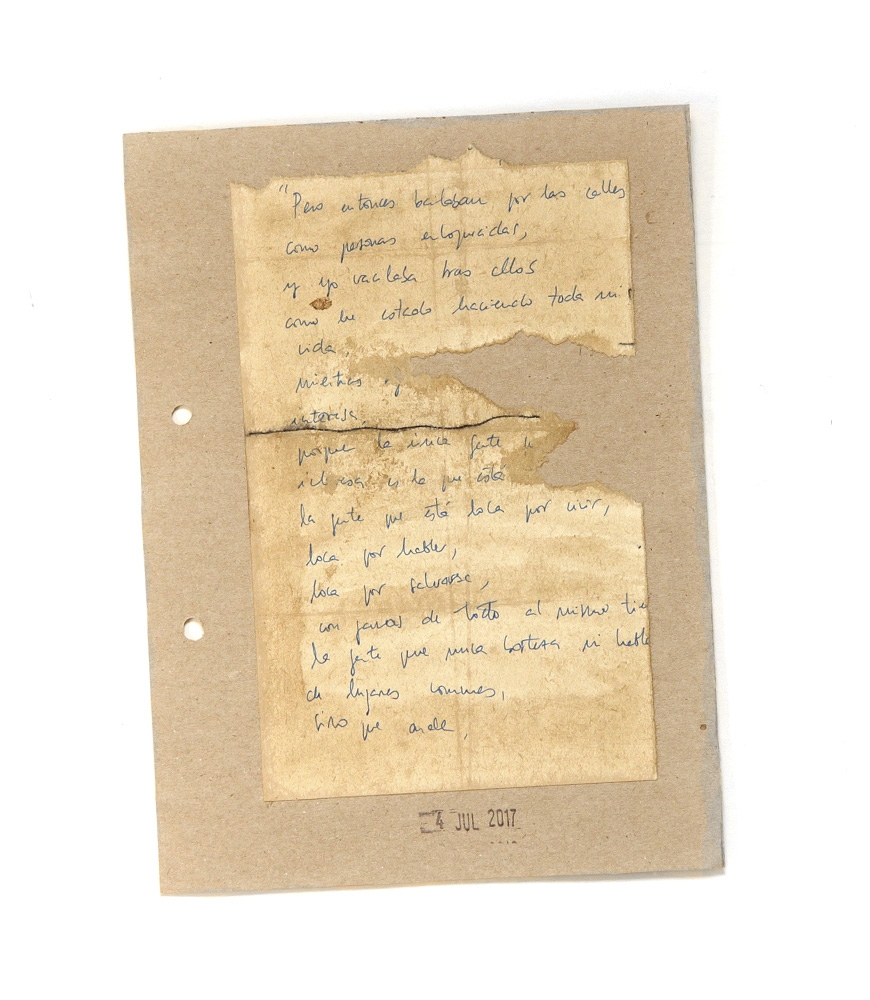 "Pero entonces bailaban por las calles
como personas enloquecidas,
y yo vacilaba tras ellos
como he estado haciendo toda mi
vida,
mientras
interesa
porque la única gente
interesa es la que está
la gente que está loca por vivir,
loca por hablar,
loca por salvarse,
con ganas de todo al mismo tie
la gente que nunca bosteza ni habla
de lugares comunes,
sino que arde,
4 JUL 2017